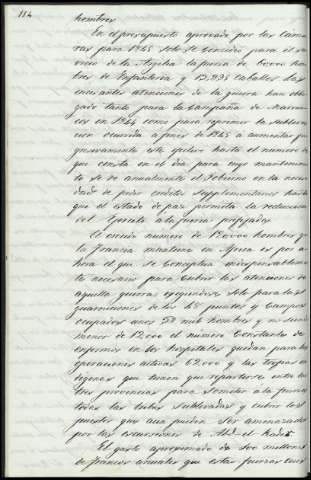 114
hombres
En el presupuesto aprovado por las Cáma
ras para 1845 solo se concedio para el ser
vicio de la Argelia la fuerza de 60000 hom
bres de Infanteria y 13.895 Caballos las
incesantes atenciones de la guerra han obli
gado tanto para la Campaña de Marrue
cos en 1844 como para reprimir la subleva
cion ocurrida a fines de 1845 a aumentar
este efectivo hasta el numero de
que consta en el dia para cuyo mantenimien
to se ve anualmente el Gobierno en la nece
sidad de pedir creditos supplementarios hasta
que el estado de paz permita la reduccion
del Egercito a la fuerza prefijada
El crecido numero de hombres q.e
la Francia mantiene en Africa es por a
hora el que se Conceptua indispensableme
te necesario para Cubrir las atenciones de
aquella guerra exigiendose solo para las
guarniciones de los puntos y Campos
ocupados unos mil hombres y no siendo
menor de 12.000 el numero Constante de
enfermos en los hospitales quedan para las
operaciones activas 62.000 y las tropas in
digenas que tienen que repartirse entre las
tres provincias para someter a la fuerza
todas las tribus sublevadas y cubrir los
puestos que aun pueden ser amenazados
por las escursiones de Abd-el-Kader.
El gasto aproximado de 100 millones
de francos anuales que estas fuerzas